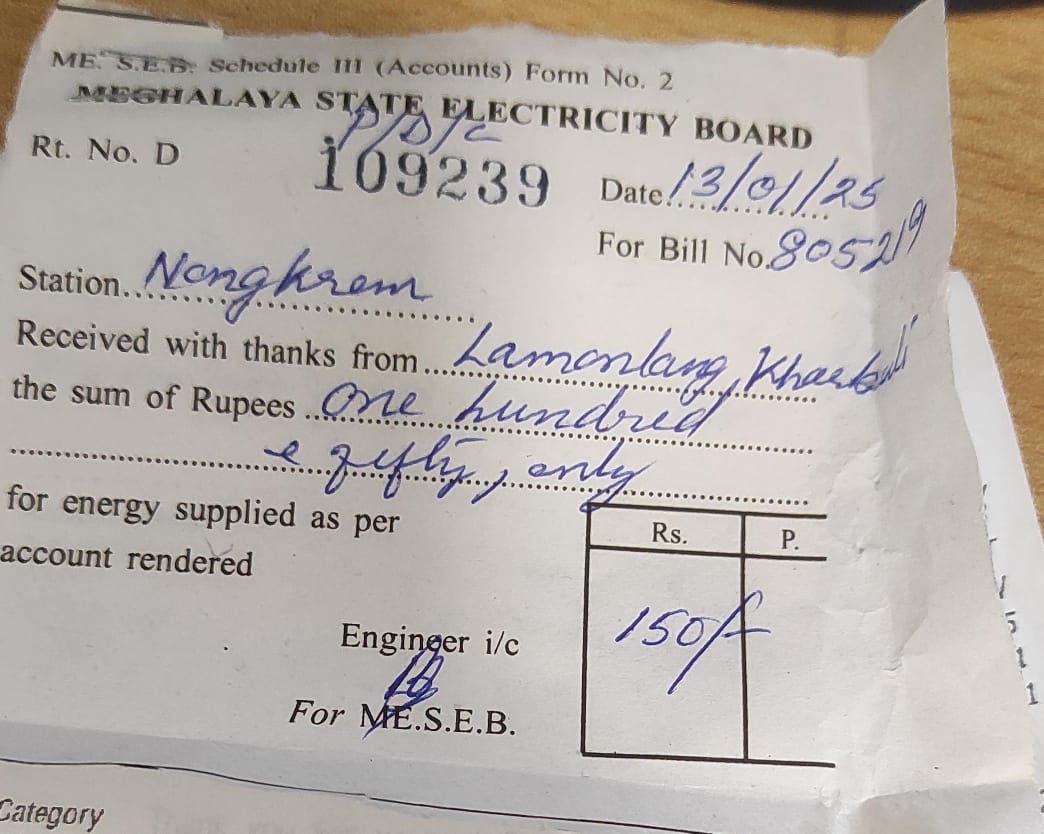 ME. S.E.B. Schedule III (Accounts) Form No. 2
MEGHALAYA STATE ELECTRICITY BOARD
P/D/C
Rt. No. D 109239 Date 13/01/25
For Bill No. 805219
Station Nongkrem
Received with thanks from Lamonlang, Kharbuli
the sum of Rupees One hundred
e fifty, only
for energy supplied as per
account rendered
Rs. P.
150/-
Engineer i/c
For ME.S.E.B.
Category